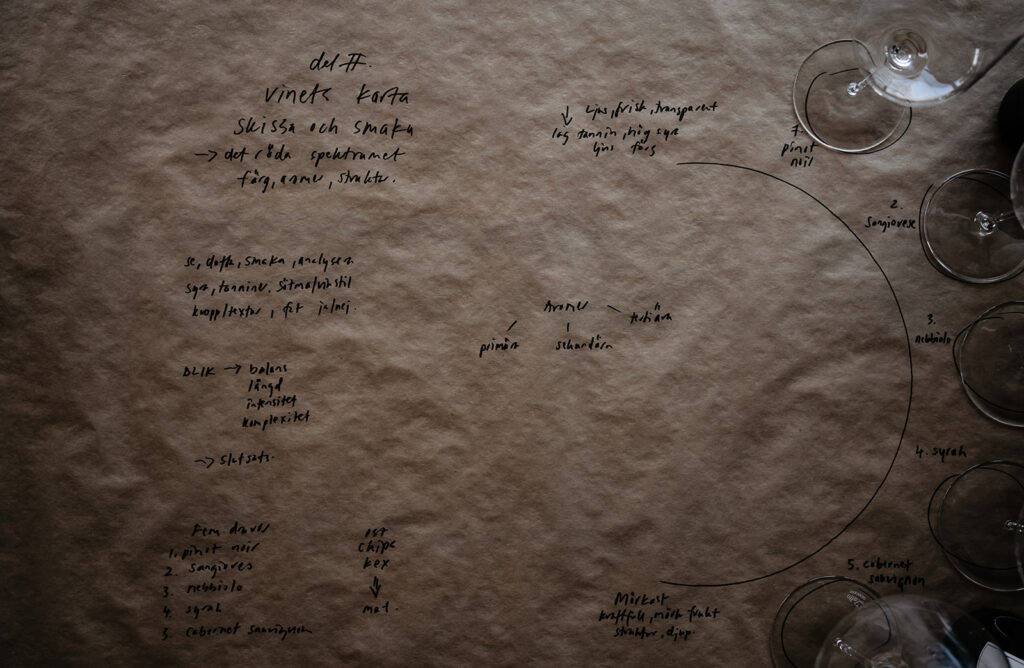 del II.
vinets karta
skissa och smaka
→ det röda spektrumet
färg, aromer, struktur.
se, dofta, smaka, analysera
syra, tanniner, sötma/vinstil
kropp/textur, fat ja/nej.
BLIK → balans
längd
intensitet
komplexitet
→ slutsats.
Fem druvor
1. pinot noir
2. sangioves
3. nebbiolo
4. syrah
5. cabernet sauvignon
ost
chips
kex
↓
mat.
Aromer
primära
sekundära
tertiära
↓ Ljus, frisk, transparent
låg tannin, hög syra
ljus färg
1.
pinot
noir
2.
sangiovese
3.
nebbiolo
4. syrah
5. cabernet
sauvignon
Mörkast
kraftfull, mörk frukt
struktur, djup.